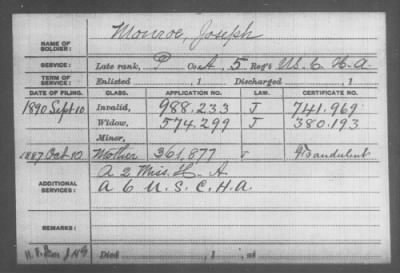 NAME OF SOLDIER: Monroe, Joseph
SERVICE: Late rank, P Co. A, 5 Reg't U.S.C.H.A.
TERM OF SERVICE: Enlisted , 1 Discharged , 1
DATE OF FILING. CLASS. APPLICATION NO. LAW. CERTIFICATE NO.
1890 Sept 10 Invalid, 988.233 J 741.969
Widow, 574.299 J 380.193
Minor,
1887 Oct 10 Mother 361,877 Fraudulent
ADDITIONAL SERVICES: A 2 Miss. H. A
A 6 U.S.C.H.A.
REMARKS:
Died , 1 , at